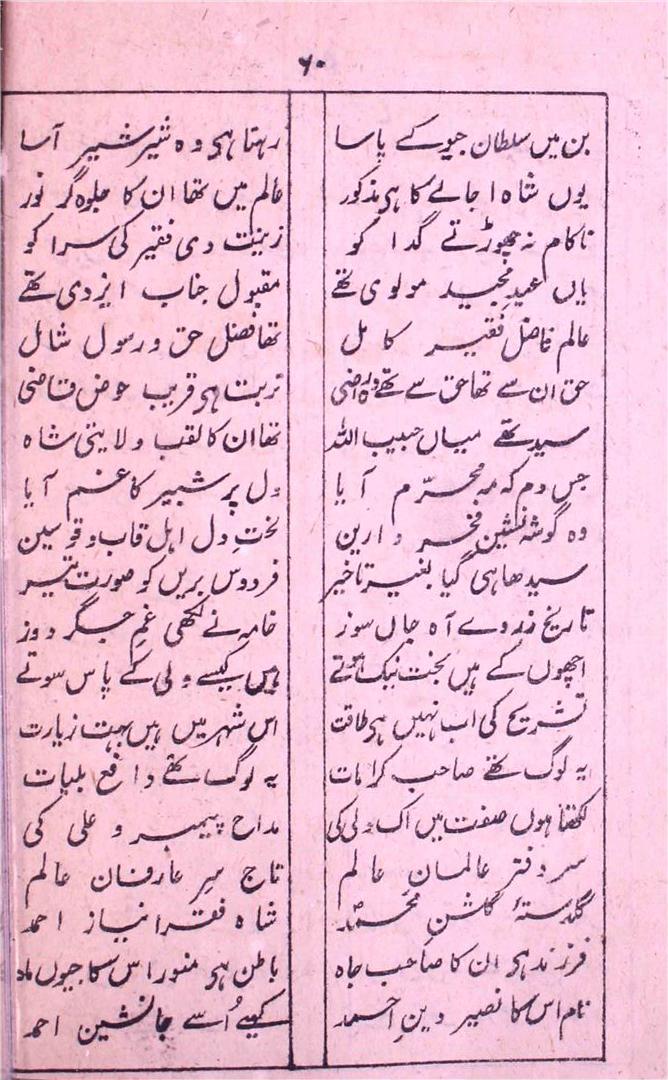 ۶۰
بن میں سلطان جیو کے پاسا رہتا ہی وہ شیر شبیر آسا
یوں شاہ اجالے کا ہی مذکور عالم میں تھا ان کا جلوہ گر نور
ناکام نہ چھوڑتے گدا کو زینت دی فقیر کی سرا کو
یاں عبد مجید مولوی تھے مقبول جناب ایزدی تھے
عالم فاضل فقیر کامل تھا فضل حق و رسول شامل
حق ان سے تھا حق سے تھے وہ راضی تربت ہی قریب حوض قاضی
سید تھے میاں حبیب اللہ تھا ان کا لقب ولایتی شاہ
جس دم کہ مہ محرّم آیا دل پر شبیر کا غم آیا
وہ گوشہ نشین فخر دارین لخت دل اہل قاب و قوسین
سیدھا ہی گیا بغیر تاخیر فردوس بریں کو صورت تیر
تاریخ زروے آہ جاں سوز خامہ نے لکھی غم جگر دوز
اچھوں کے ہیں بخت نیک ہوتے ہیں کیسے ولی کے پاس سوتے
تشریح کی اب نہیں ہی طاقت اس شہر میں ہیں بہت زیارت
یہ لوگ تھے صاحب کرامات یہ لوگ تھے دافع بلیات
لکھتا ہوں صفت میں اک ولی کی مداح پیمبر و علی کی
سر دفتر عالمان عالم تاج سر عارفان عالم
گلدستۂ گلشن محمدؐ شاہ فقرا نیاز احمد
فرزند ہی ان کا صاحب جاہ باطن ہی منور اس کا جیوں ماہ
نام اس کا نصیر دین احمد کہیے اُسے جانشین احمد